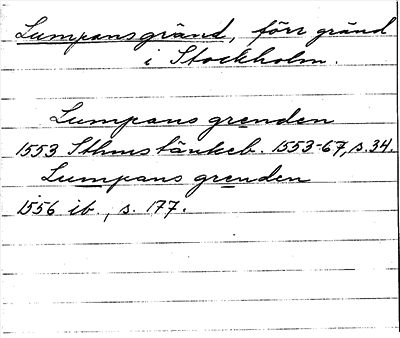 Lumpansgränd, förr gränd
i Stockholm.
Lumpans grenden
1553 Sthms tänkeb. 1553-67, s. 34.
Lumpans grenden
1556 ib., s. 177.